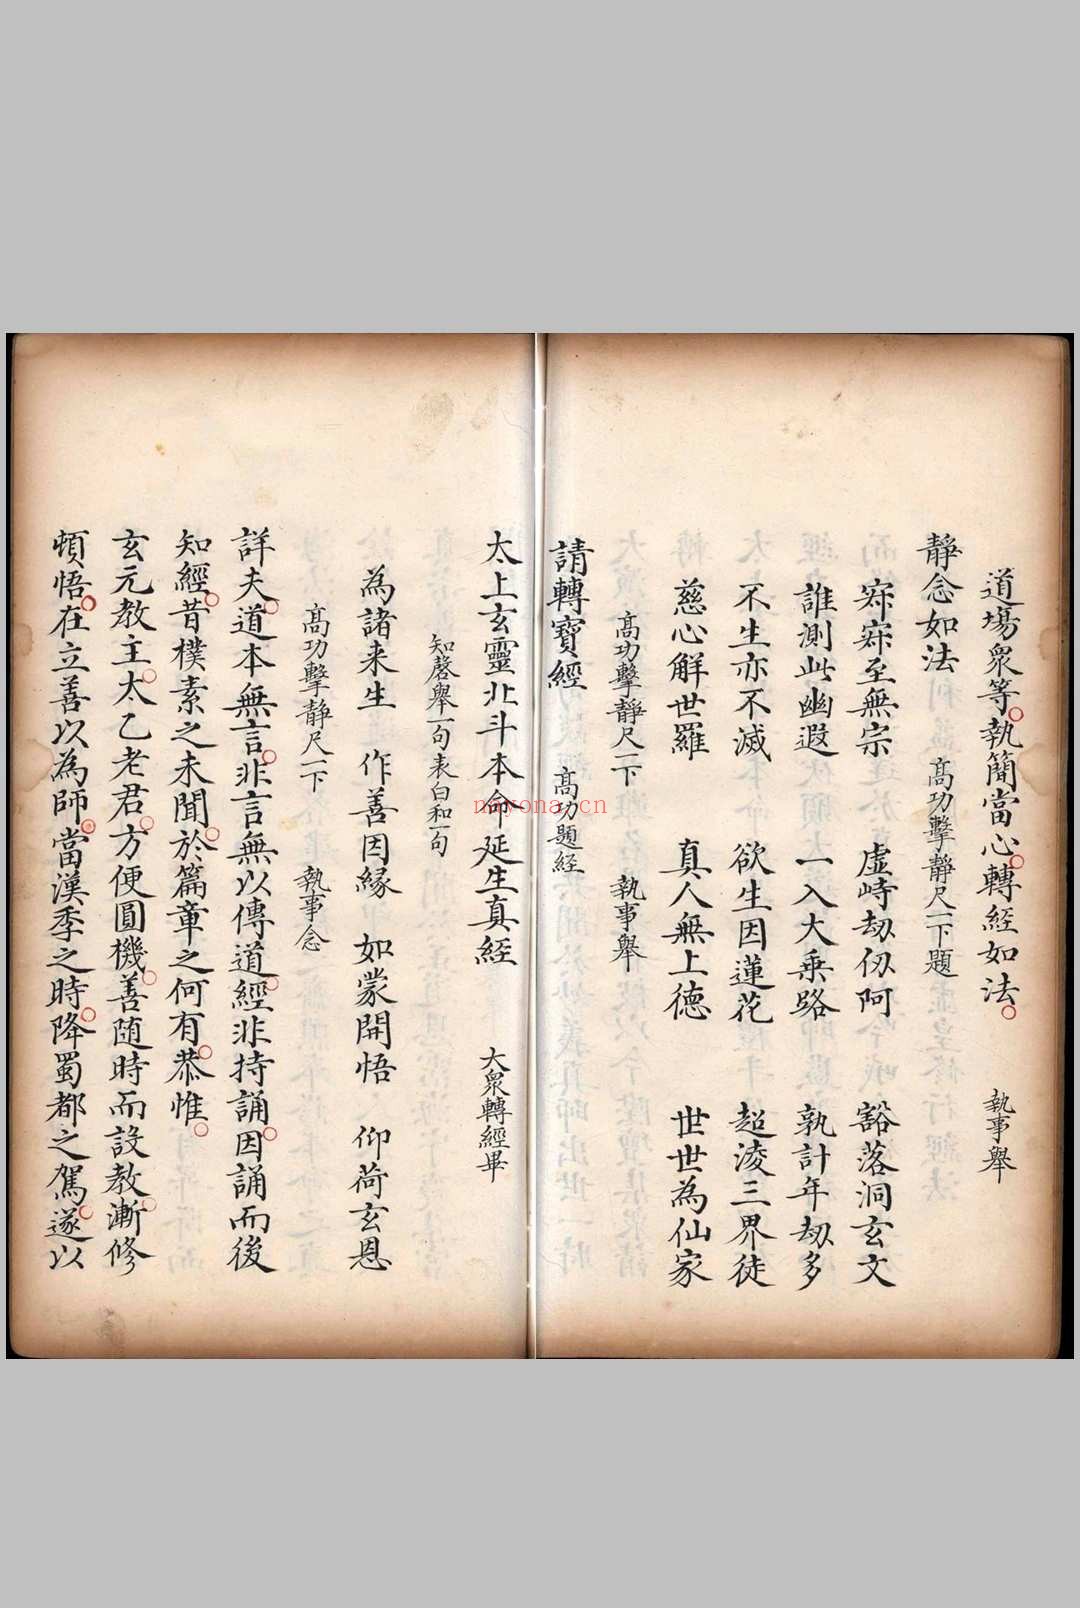 道場衆等執簡當心轉經如法 執事舉
靜念如法 高功擊靜尺一下題
寂寂至無宗 虛峙劫仞阿 豁落洞玄文
誰測此幽遐 一入大乗路 孰計年劫多
不生亦不滅 欲生因蓮花 超淩三界徒
慈心解世羅 真人無上德 世世為仙家
高功擊靜尺一下 執事舉
請轉寶經 高功題経
太上玄靈北斗本命延生真經 大衆轉經畢
知磬舉一句表白和一句
為諸来生 作善因緣 如蒙開悟 仰荷玄恩
高功擊静尺一下 執事念
詳夫道本無言非言無以傳道經非持誦因誦而後
知經昔樸素之未聞於篇章之何有恭惟
玄元教主太乙老君方便圓機善随時而設教漸修
頓悟在立善以為師當漢季之時降蜀都之駕遂以
nayona.cn